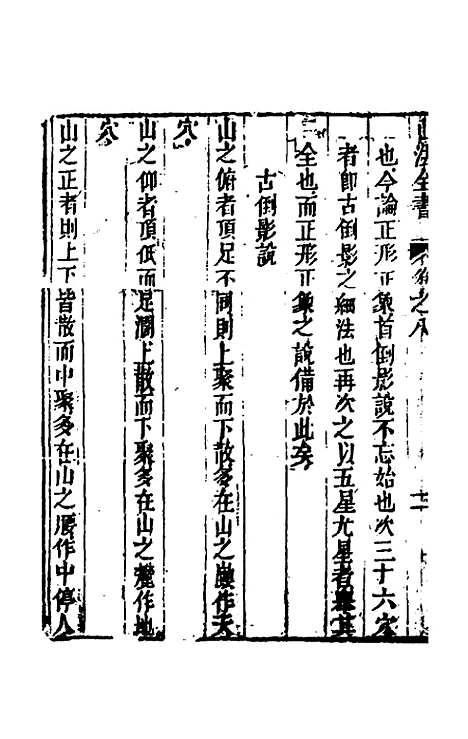 山法全書 卷之八
也今論正形正象首倒影說不忘始也次三十六穴
者即古倒影之細法也再次之以五星九星者舉其
全也而正形正象之說備於此矣
古倒影說
山之俯者頂足不同則上聚而下散多在山之巔作天
穴
山之仰者頂低而足濶上散而下聚多在山之麓作地
穴
山之正者則上下皆散而中聚多在山之腰作中停人